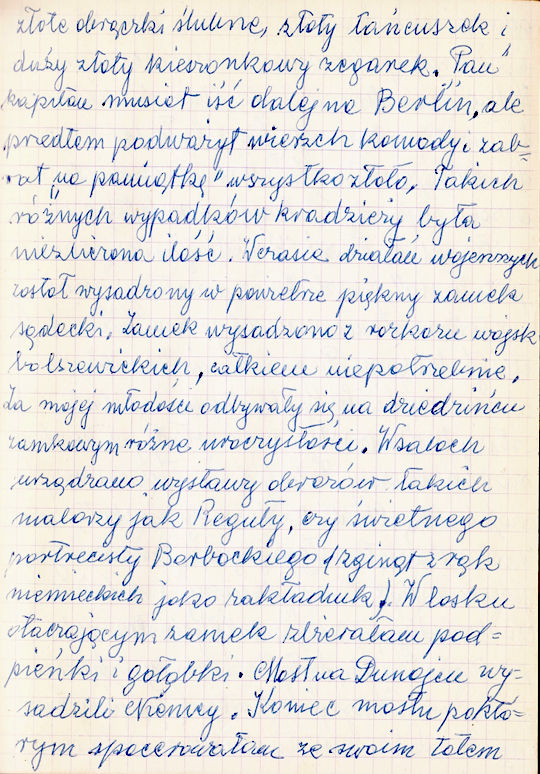 złote obrączki ślubne, złoty łańcuszek i
duży złoty kieszonkowy zegarek. Pan
kapitan musiał iść dalej na Berlin, ale
przedtem podważył wierzch komody i zab=
rał „na pamiątkę" wszystko złoto. Takich
różnych wypadków kradzieży była
niezliczona ilość. W czasie działań wojennych
został wysadzony w powietrze piękny zamek
sądecki. Zamek wysadzono z rozkazu wojsk
bolszewickich, całkiem niepotrzebnie.
Za mojej młodości odbywały się na dziedzińcu
zamkowym różne uroczystości. W salach
urządzano wystawy obrazów takich
malarzy jak Reguły, czy świetnego
portrecisty Barbackiego (zginął z rąk
niemieckich jako zakładnik). W lasku
otaczającym zamek zbierałam pod=
pieńki i gołąbki. Most na Dunajcu wy=
sadzili Niemcy. Koniec mostu po któ=
rym spacerowałam ze swoim